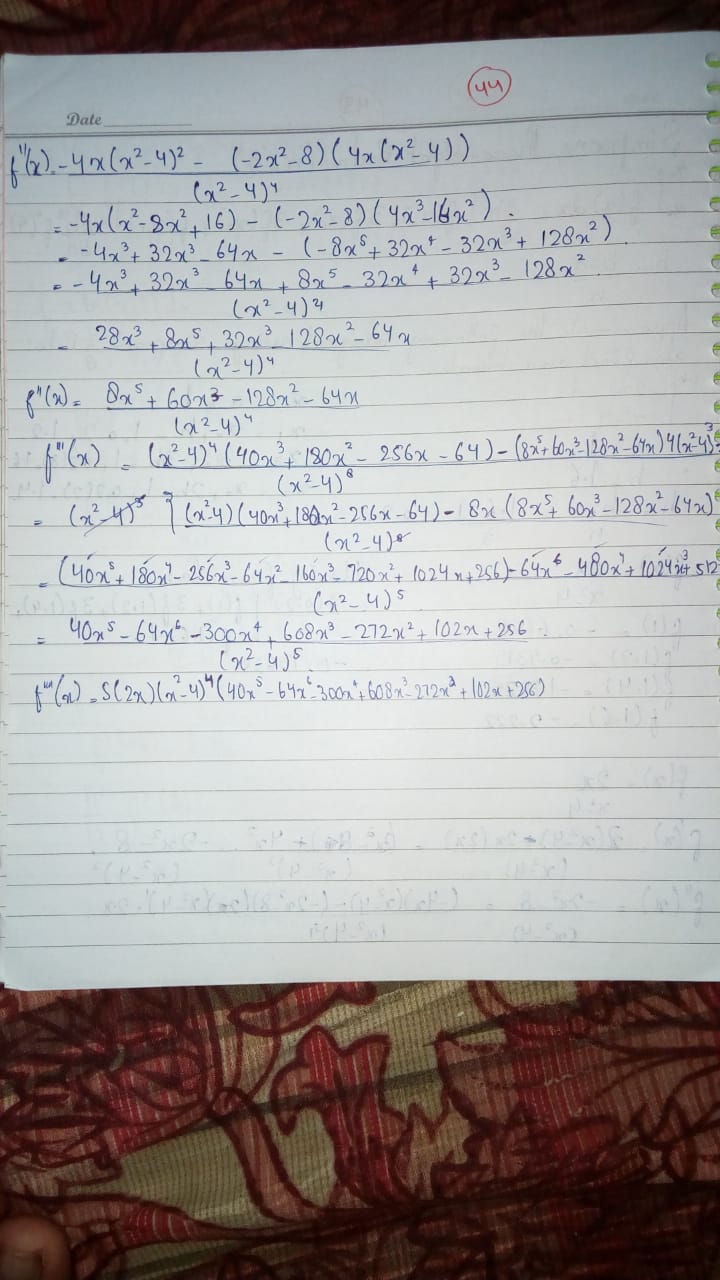 44
Date
f''(x) = -4x(x²-4)² - (-2x²-8)(4x(x²-4))
(x²-4)⁴
= -4x(x²-8x²+16) - (-2x²-8)(4x³-16x²).
= -4x³+32x³-64x - (-8x⁵+32x⁴-32x³+128x²)
= -4x³+32x³-64x+8x⁵-32x⁴+32x³-128x²
(x²-4)⁴
= 28x³+8x⁵+32x³-128x²-64x
(x²-4)⁴
f''(x) = 8x⁵+60x³-128x²-64x
(x²-4)⁴
f'''(x) = (x²-4)⁴(40x³+180x²-256x-64)-(8x⁵+60x³-128x²-64x)4(x²-4)³
(x²-4)⁸
= (x²-4)³ [(x²-4)(40x³+180x²-256x-64)-8x(8x⁵+60x³-128x²-64x)
(x²-4)⁸
= (40x⁵+180x⁴-256x³-64x²-160x³-720x²+1024x+256)-64x⁶-480x⁴+1024x³+512
(x²-4)⁵
= 40x⁵-64x⁶-300x⁴+608x³-272x²+102x+256
(x²-4)⁵
f''''(x) = 5(2x)(x²-4)⁴(40x⁵-64x⁶-300x⁴+608x³-272x²+102x+256)